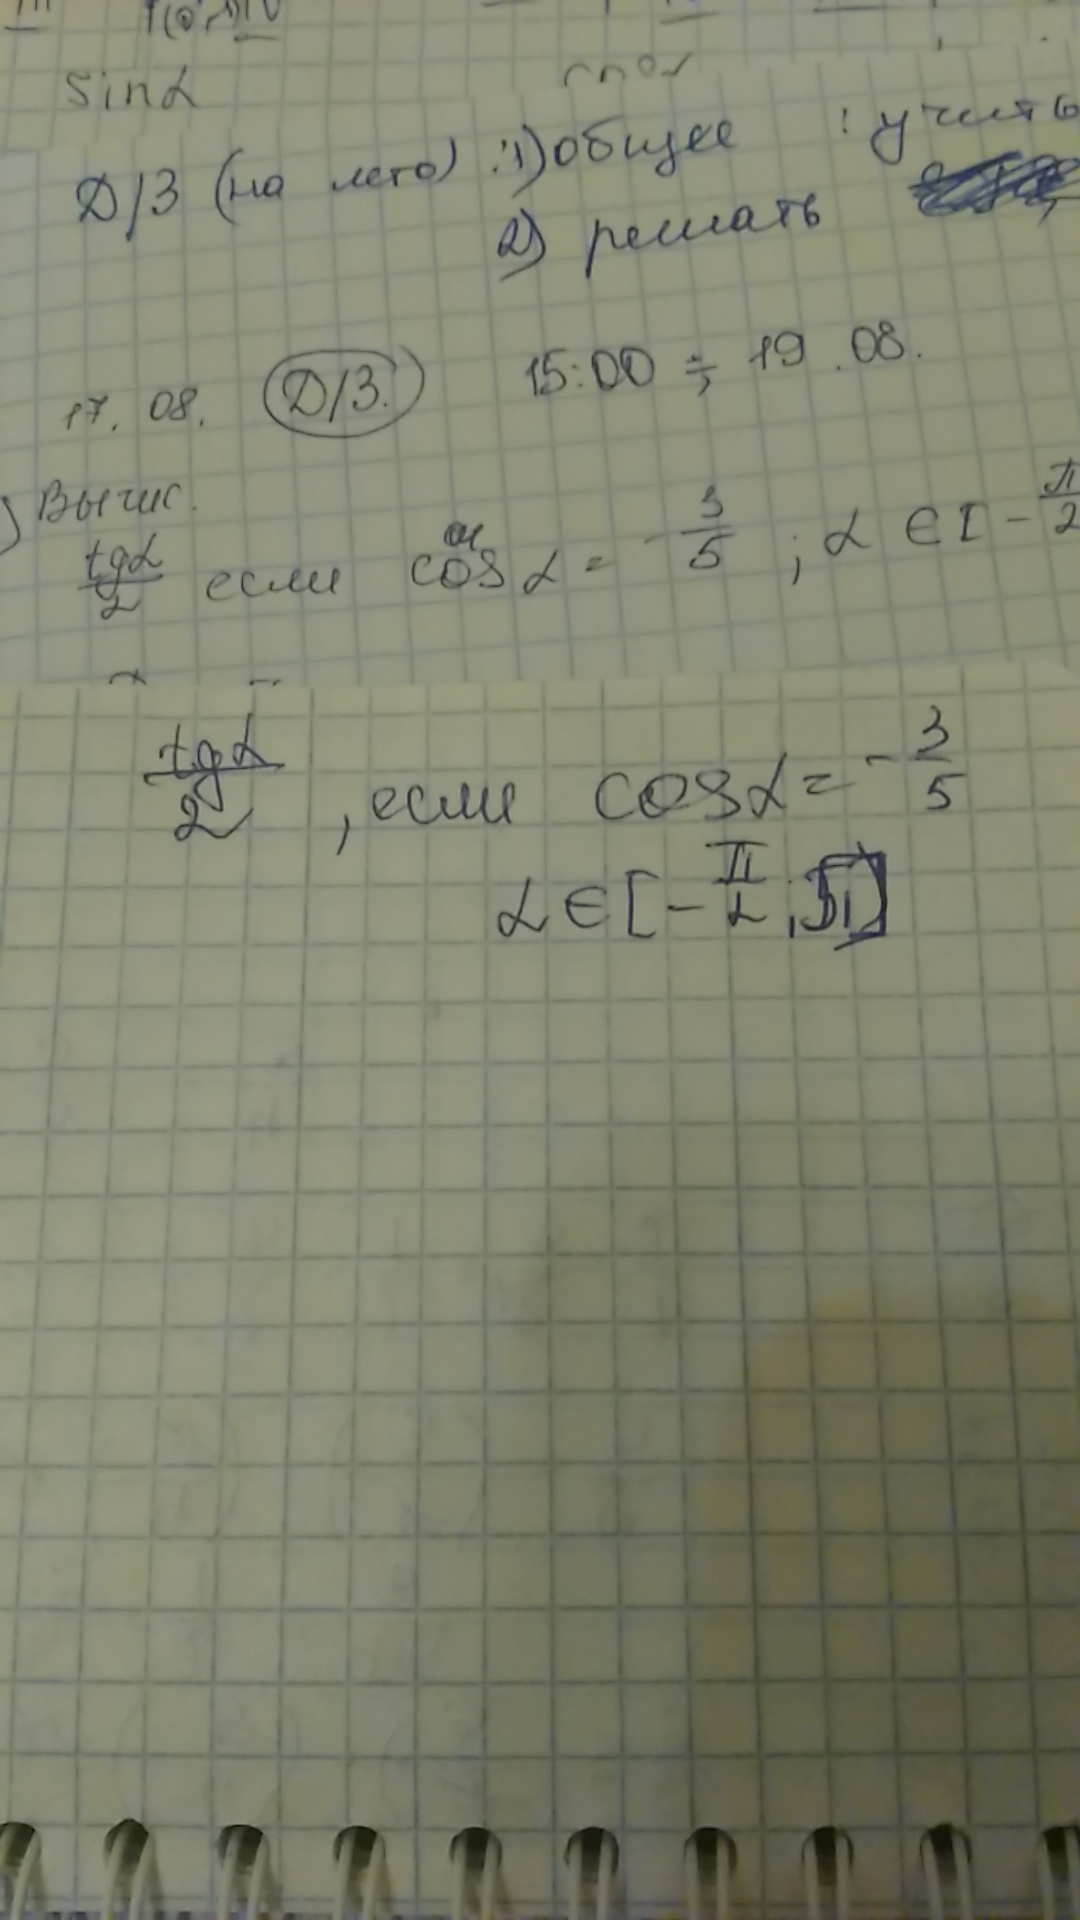 sinα
Д/З (на лето) : 1) общее : учить
2) решать
17. 08. Д/З. 15:00 ÷ 19 . 08.
) Вычис.
tgα/2 если cosα = - 3/5 ; α ∈ [ - π/2
tgα/2 , если cosα = - 3/5
α ∈ [ - π/2 ; π]